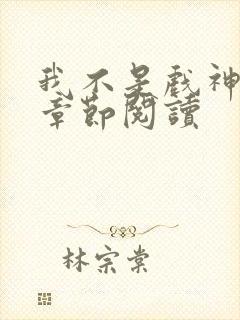 我不是戏神
章節閱讀
林宗棠